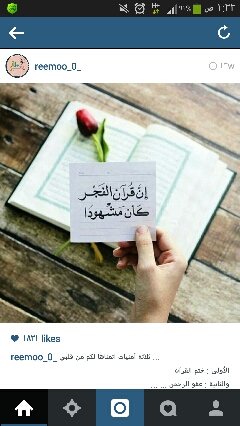 ١:٣٢ ص
٩٢%
reemoo_0_
١٣w
إِنَّ قُرْآنَ الْفَجْرِ
كَانَ مَشْهُودًا
١٨٣١ likes
reemoo_0_ ثلاثة أمنيات اتمناها لكم من قلبي ...
الأولى : ختم القرآن
والثانية : عفو الرحمن ... ...